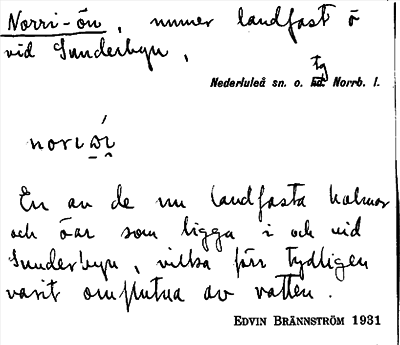 Norri-ön, numer landfast ö
vid Sunderbyn,
Nederluleå sn. o. tg Norrb. l.
En av de nu landfasta holmar
och öar som ligga i och vid
Sunderbyn, vilka förr tydligen
varit omflutna av vatten.
EDVIN BRÄNNSTRÖM 1931